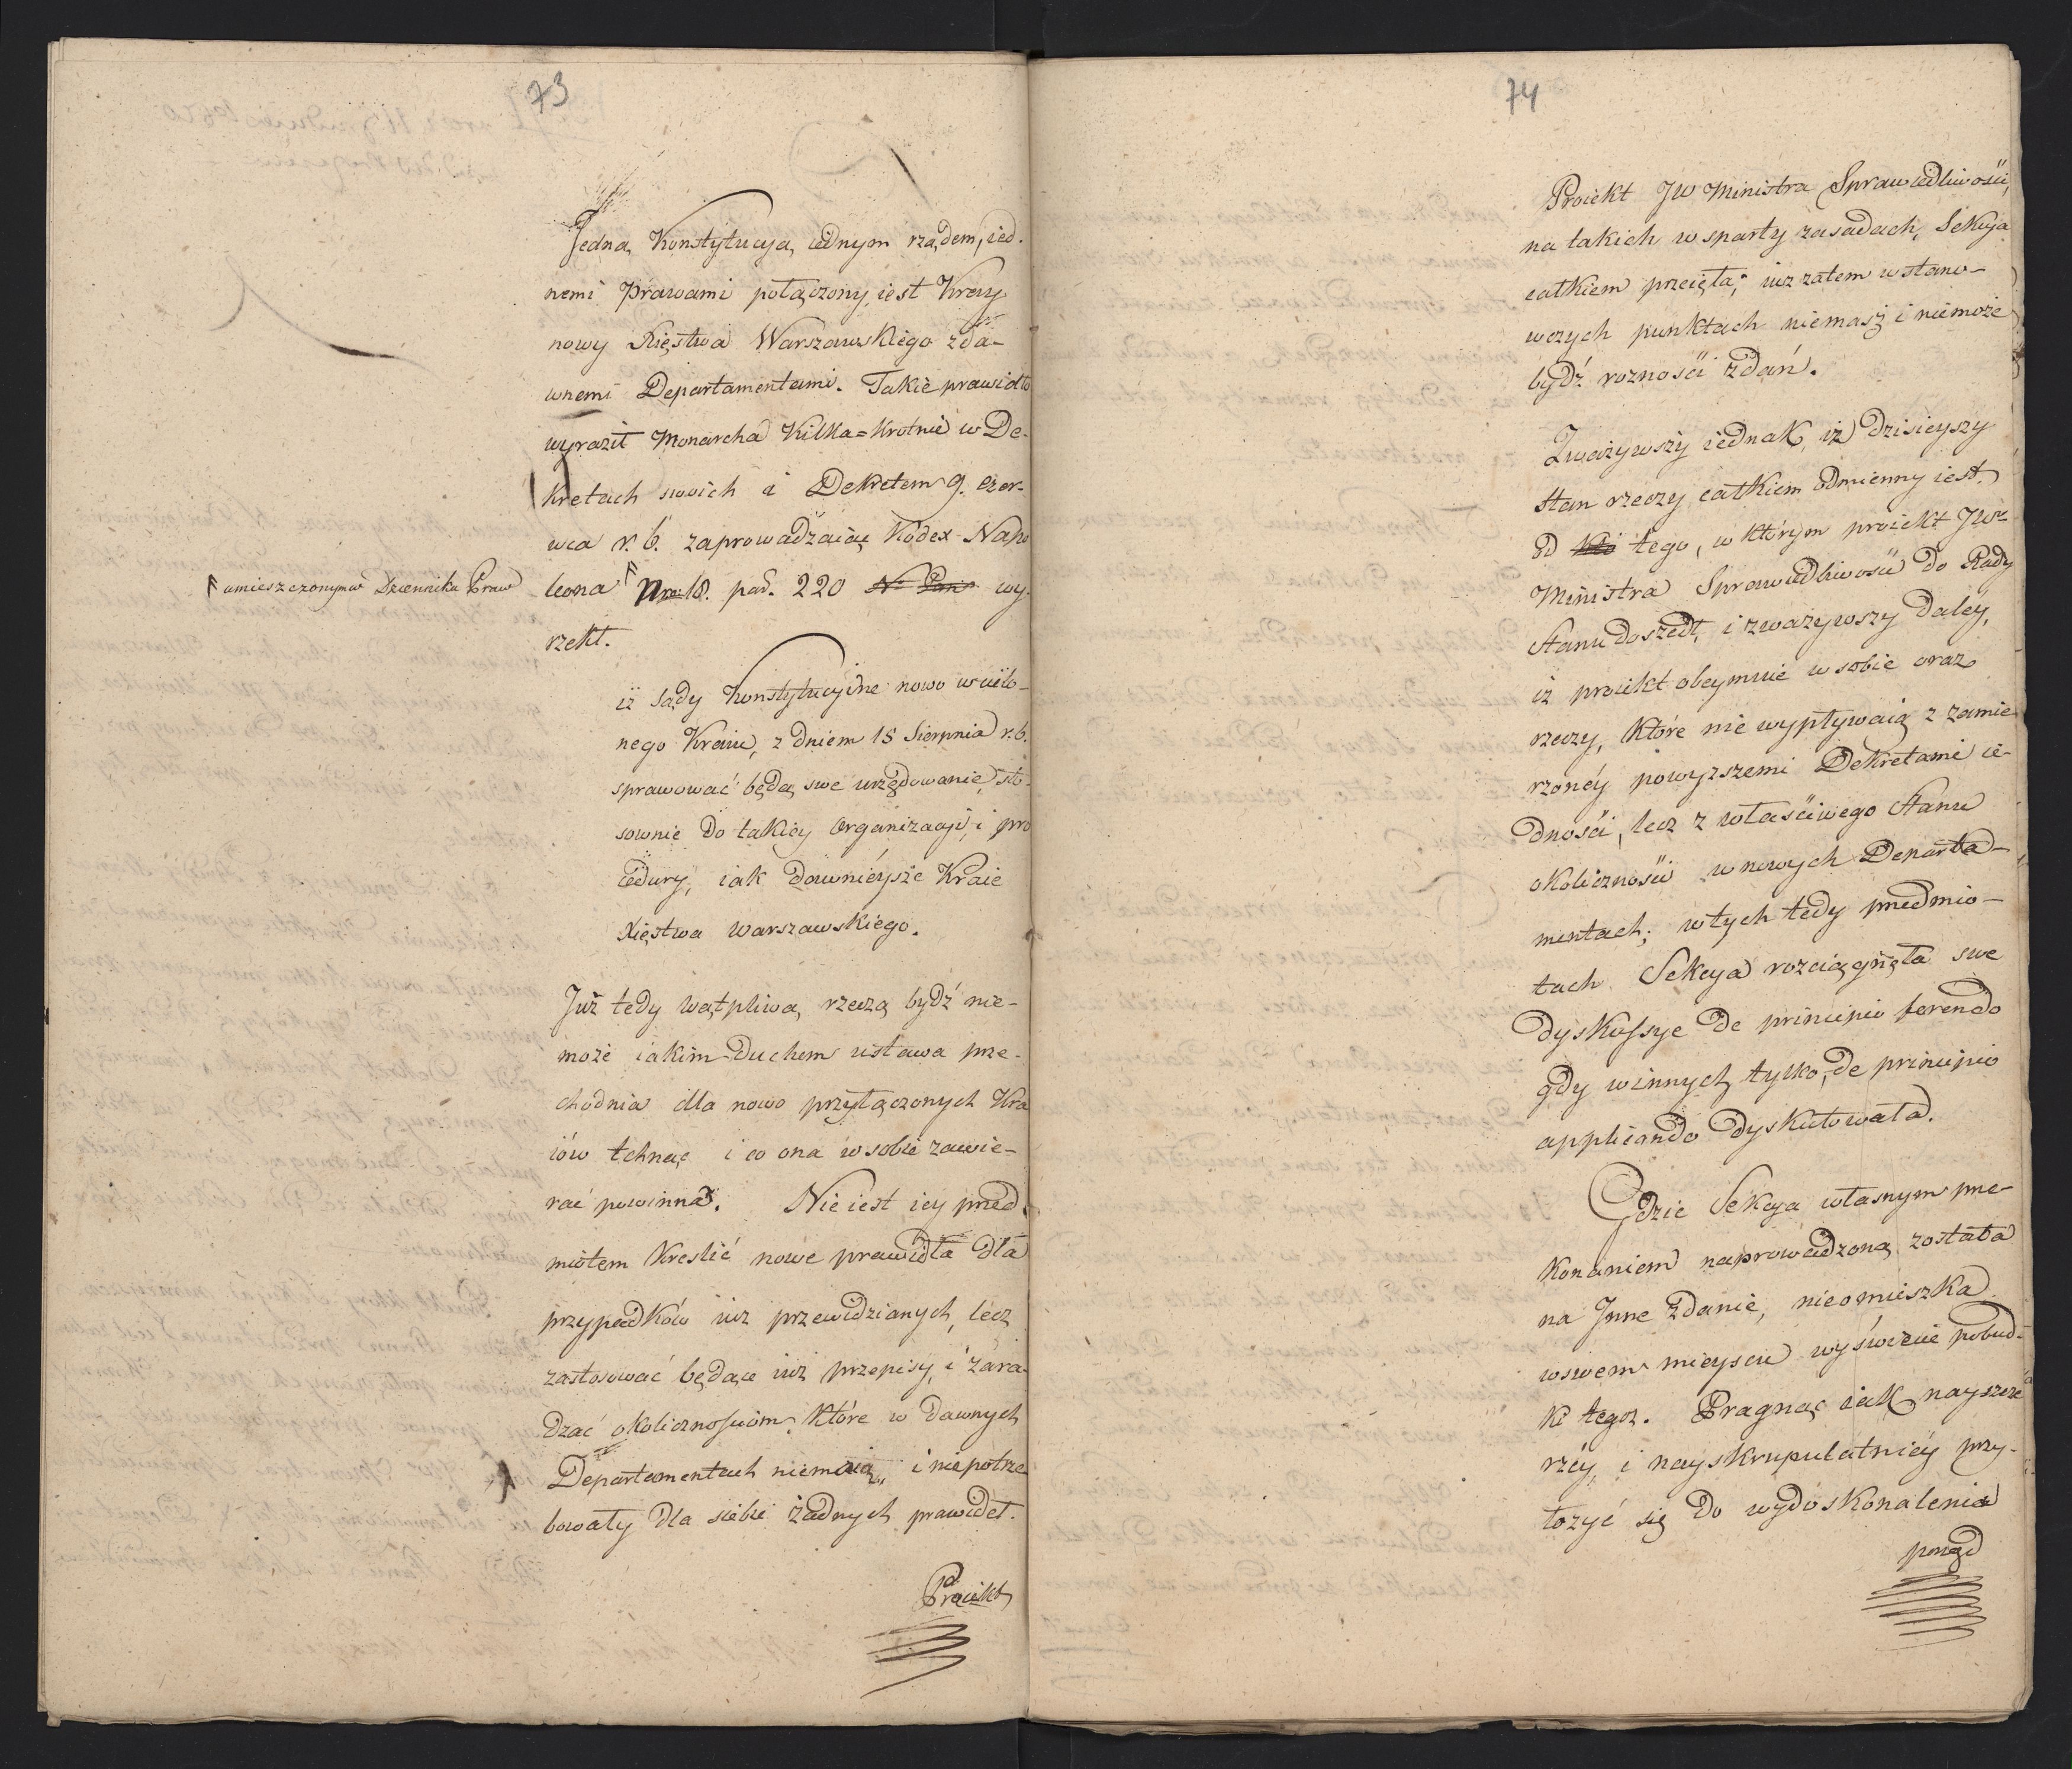 73
Jedną Konstytucyą, iednym rządem, ied-
nemi Prawami połączony iest Kray
nowy Xięstwa Warszawskiego zda-
wnemi Departamentami. Takie prawidło
wyraził Monarcha Kilka=krotnie w De-
kretach swoich i Dekretem 9. czer-
wca r. b. zaprowadzaiąc Kodex Napo
leona Nro: 18. pad. 220 wy-
umieszczonym w Dzienniku Praw
rzekł.
iż sądy Konstytucyine nowo wcielo-
nego Kraiu, z dniem 15 Sierpnia r. b.
sprawować będą swe urzędowanie, sto-
sownie do takiey Organizacyi, i pro
cedury, iak dawnieysze Kraie
Xięstwa Warszawskiego.
Już tedy wątpliwą rzeczą bydź nie-
może iakim Duchem ustawa prze-
chodnia dla nowo przyłączonych Kra
iów tchnąć i co ona w sobie zawie-
rać powinna. Nie iest iey przed-
miotem Kreślić nowe prawidła dla
przypadków iuż przewidzianych, lecz
zastosować będące iuż przepisy, i zara-
dzać okolicznościom, które w dawnych
Departamentach niemaią, i niepotrze
bowały dla siebie żadnych prawideł.
Proiekt
74
Proiekt JW Ministra Sprawiedliwości,
na takich wsparty zasadach, Sekcya
całkiem przeięta; iuż zatem w stano-
wczych punktach niemasz i niemoże
bydź rozności zdań.
Zważywszy iednak, iż dzisieyszy
stan rzeczy całkiem odmienny iest.
od tego, w którym proiekt JWo
Ministra Sprawiedliwości do Rady
Stanu doszedł, i zważywszy daley,
iż proiekt obeymuie w sobie oraz
rzeczy, które nie wypływaią z zamie
rzoney powyższemi Dekretami ie-
dności, lecz z właściwego Stanu
okoliczności w nowych Departa-
mentach; w tych tedy przedmio-
tach Sekcya rozciągnęła swe
dyskussye de principio ferendo
gdy w innych tylko, de principio
applicando dyskutowała.
Gdzie Sekcya własnym prze-
konaniem naprowadzoną została
na Inne zdanie, nieomieszka
wswem mieyscu wyświecić pobud-
ki tegoż. Pragnąc iak nayszcze
rzéy i nayskrupulatniéy przy-
łożyć się do wydoskonalenia
pod